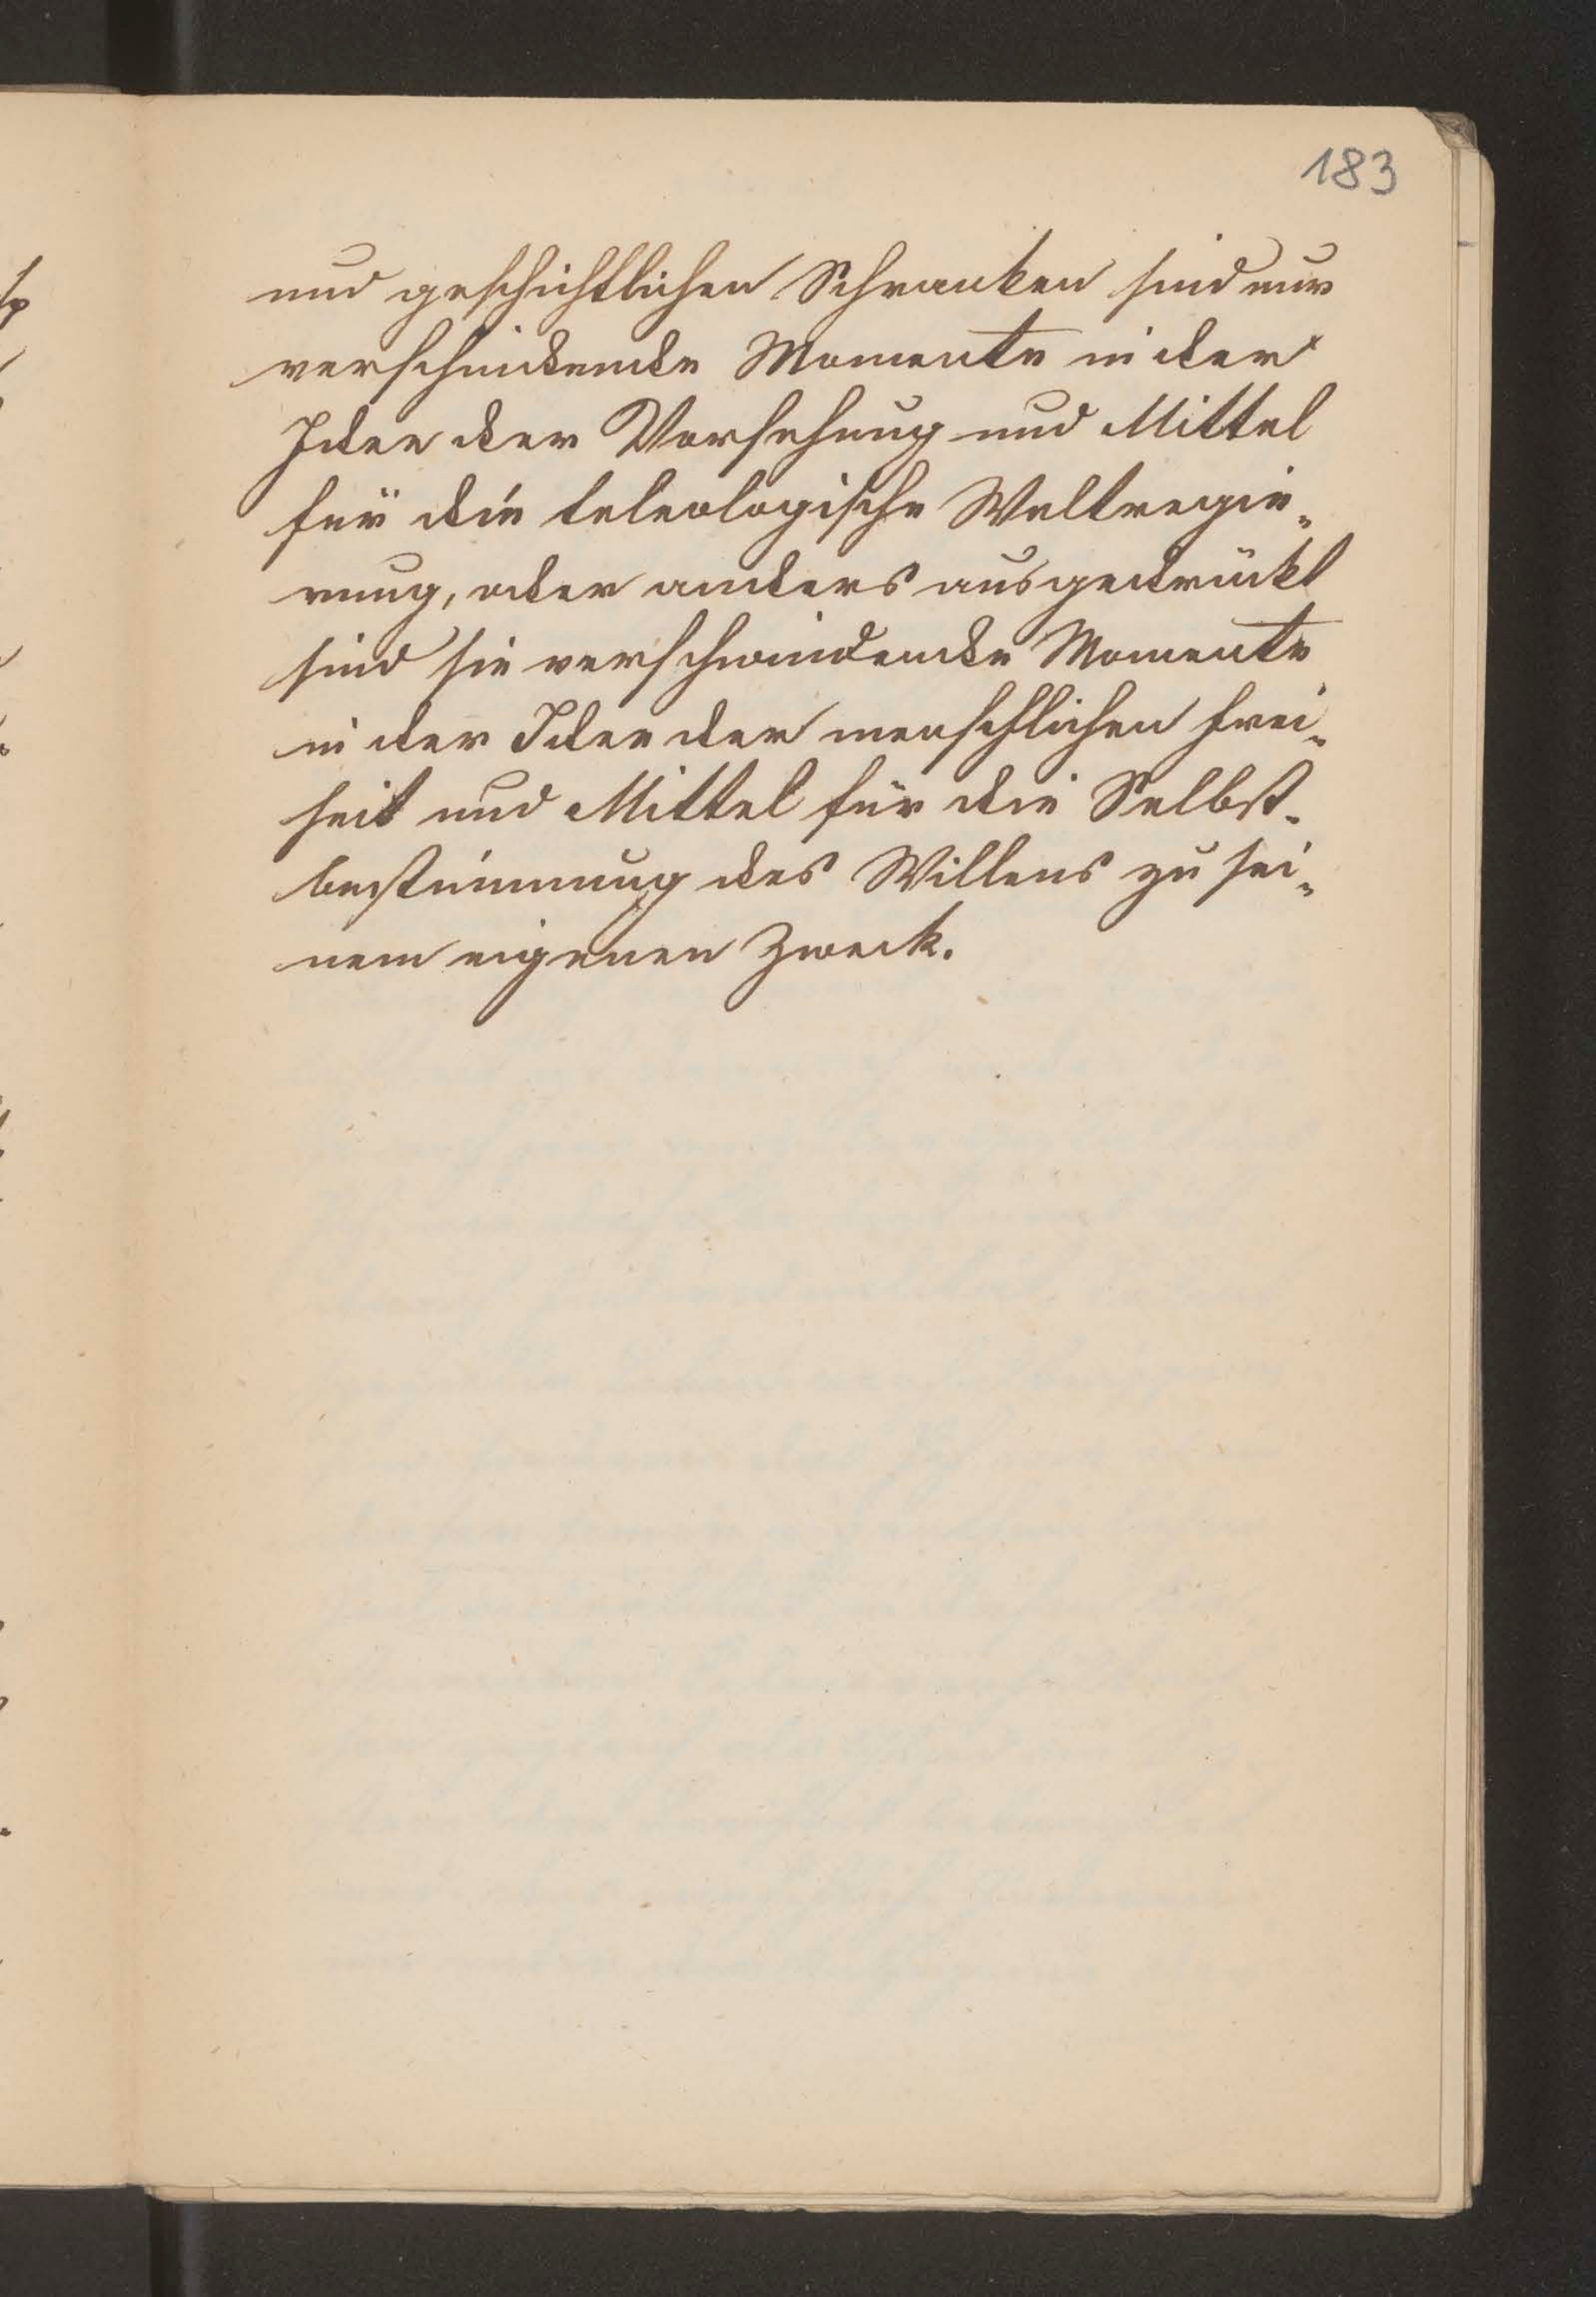 183
und geschichtlichen Schranken sind nur
verschwindende Momente in der
Idee der Vorsehung und Mittel
für die teleologische Weltregie-
rung, oder anders ausgedrückt
sind sie verschwindende Momente
in der Idee der menschlichen Frei-
heit und Mittel für die Selbst-
bestimmung des Willens zu sei-
nem eigenen Zweck.